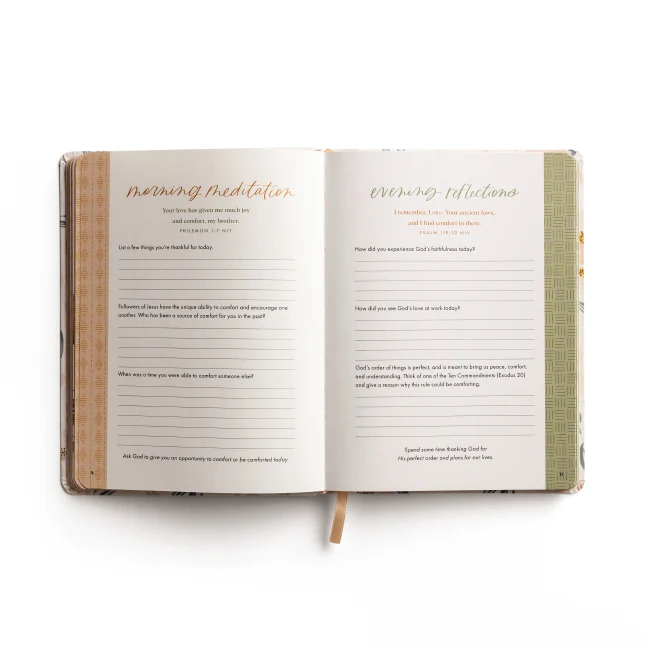 morning meditation
Your love has given me much joy
and comfort, my brother.
PHILEMON 1:7 NLT
List a few things you're thankful for today.
Followers of Jesus have the unique ability to comfort and encourage one
another. Who has been a source of comfort for you in the past?
When was a time you were able to comfort someone else?
Ask God to give you an opportunity to comfort or be comforted today.
evening reflections
I remember, LORD, Your ancient laws,
and I find comfort in them.
PSALM 119:52 NIV
How did you experience God's faithfulness today?
How did you see God's love at work today?
God's order of things is perfect, and is meant to bring us peace, comfort,
and understanding. Think of one of the Ten Commandments (Exodus 20)
and give a reason why this rule could be comforting.
Spend some time thanking God for
His perfect order and plans for our lives.